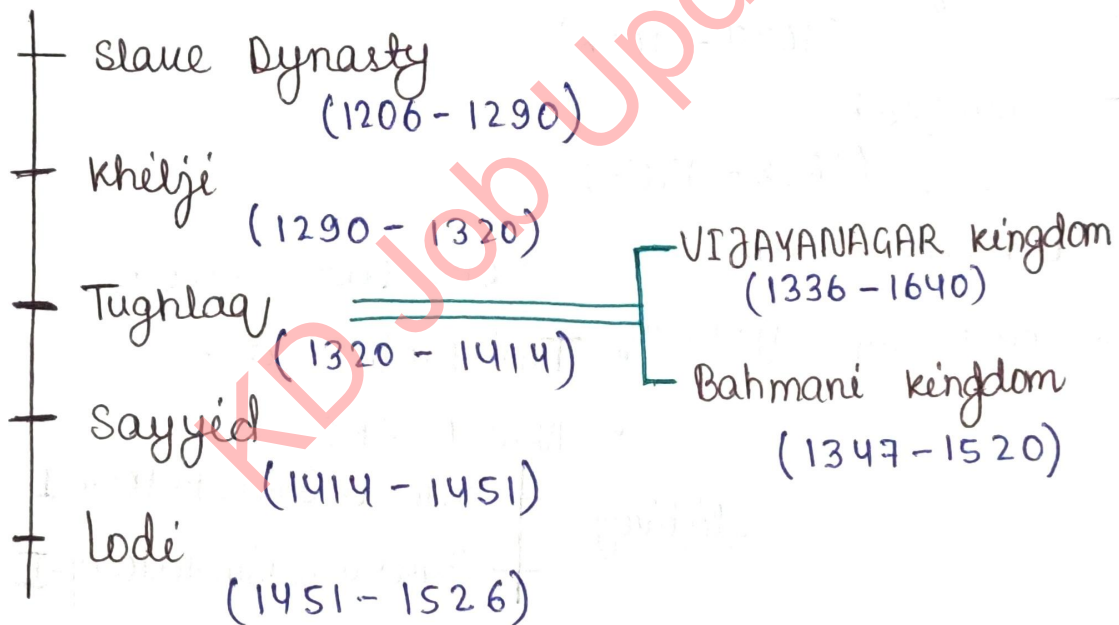 Slave Dynasty
(1206 - 1290)
Khilji
(1290 - 1320)
Tughlaq
(1320 - 1414)
Sayyid
(1414 - 1451)
Lodi
(1451 - 1526)
VIJAYANAGAR kingdom
(1336 - 1640)
Bahmani kingdom
(1347 - 1520)
KD Job